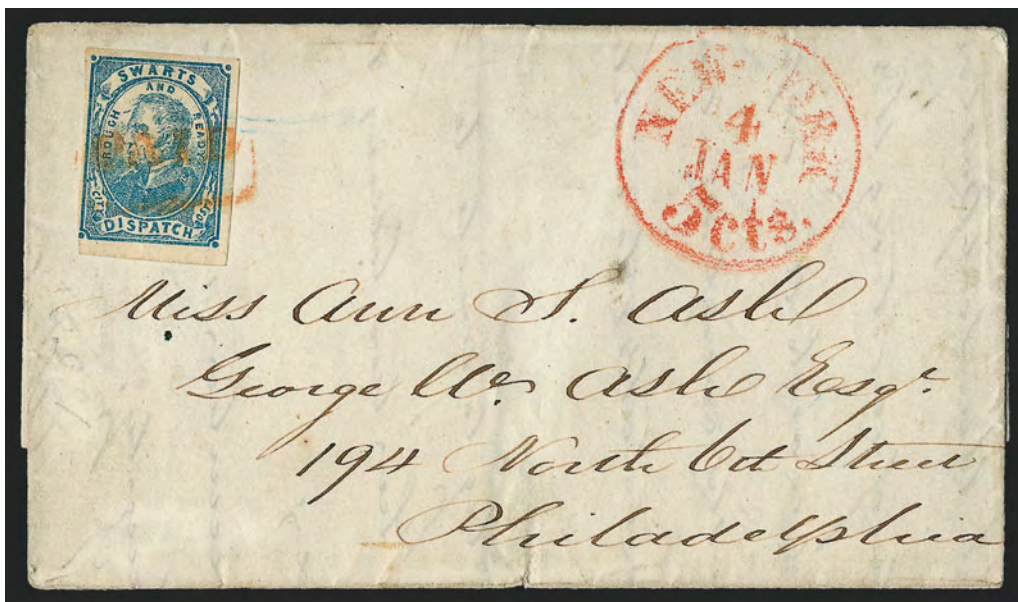 SWARTS
AND
ROUGH READY
CITY POST
DISPATCH
NEW-YORK
4
JAN
5 cts.
Miss Ann S. Ash
George W. Ash Esqr.
194 North 6th Street
Philadelphia